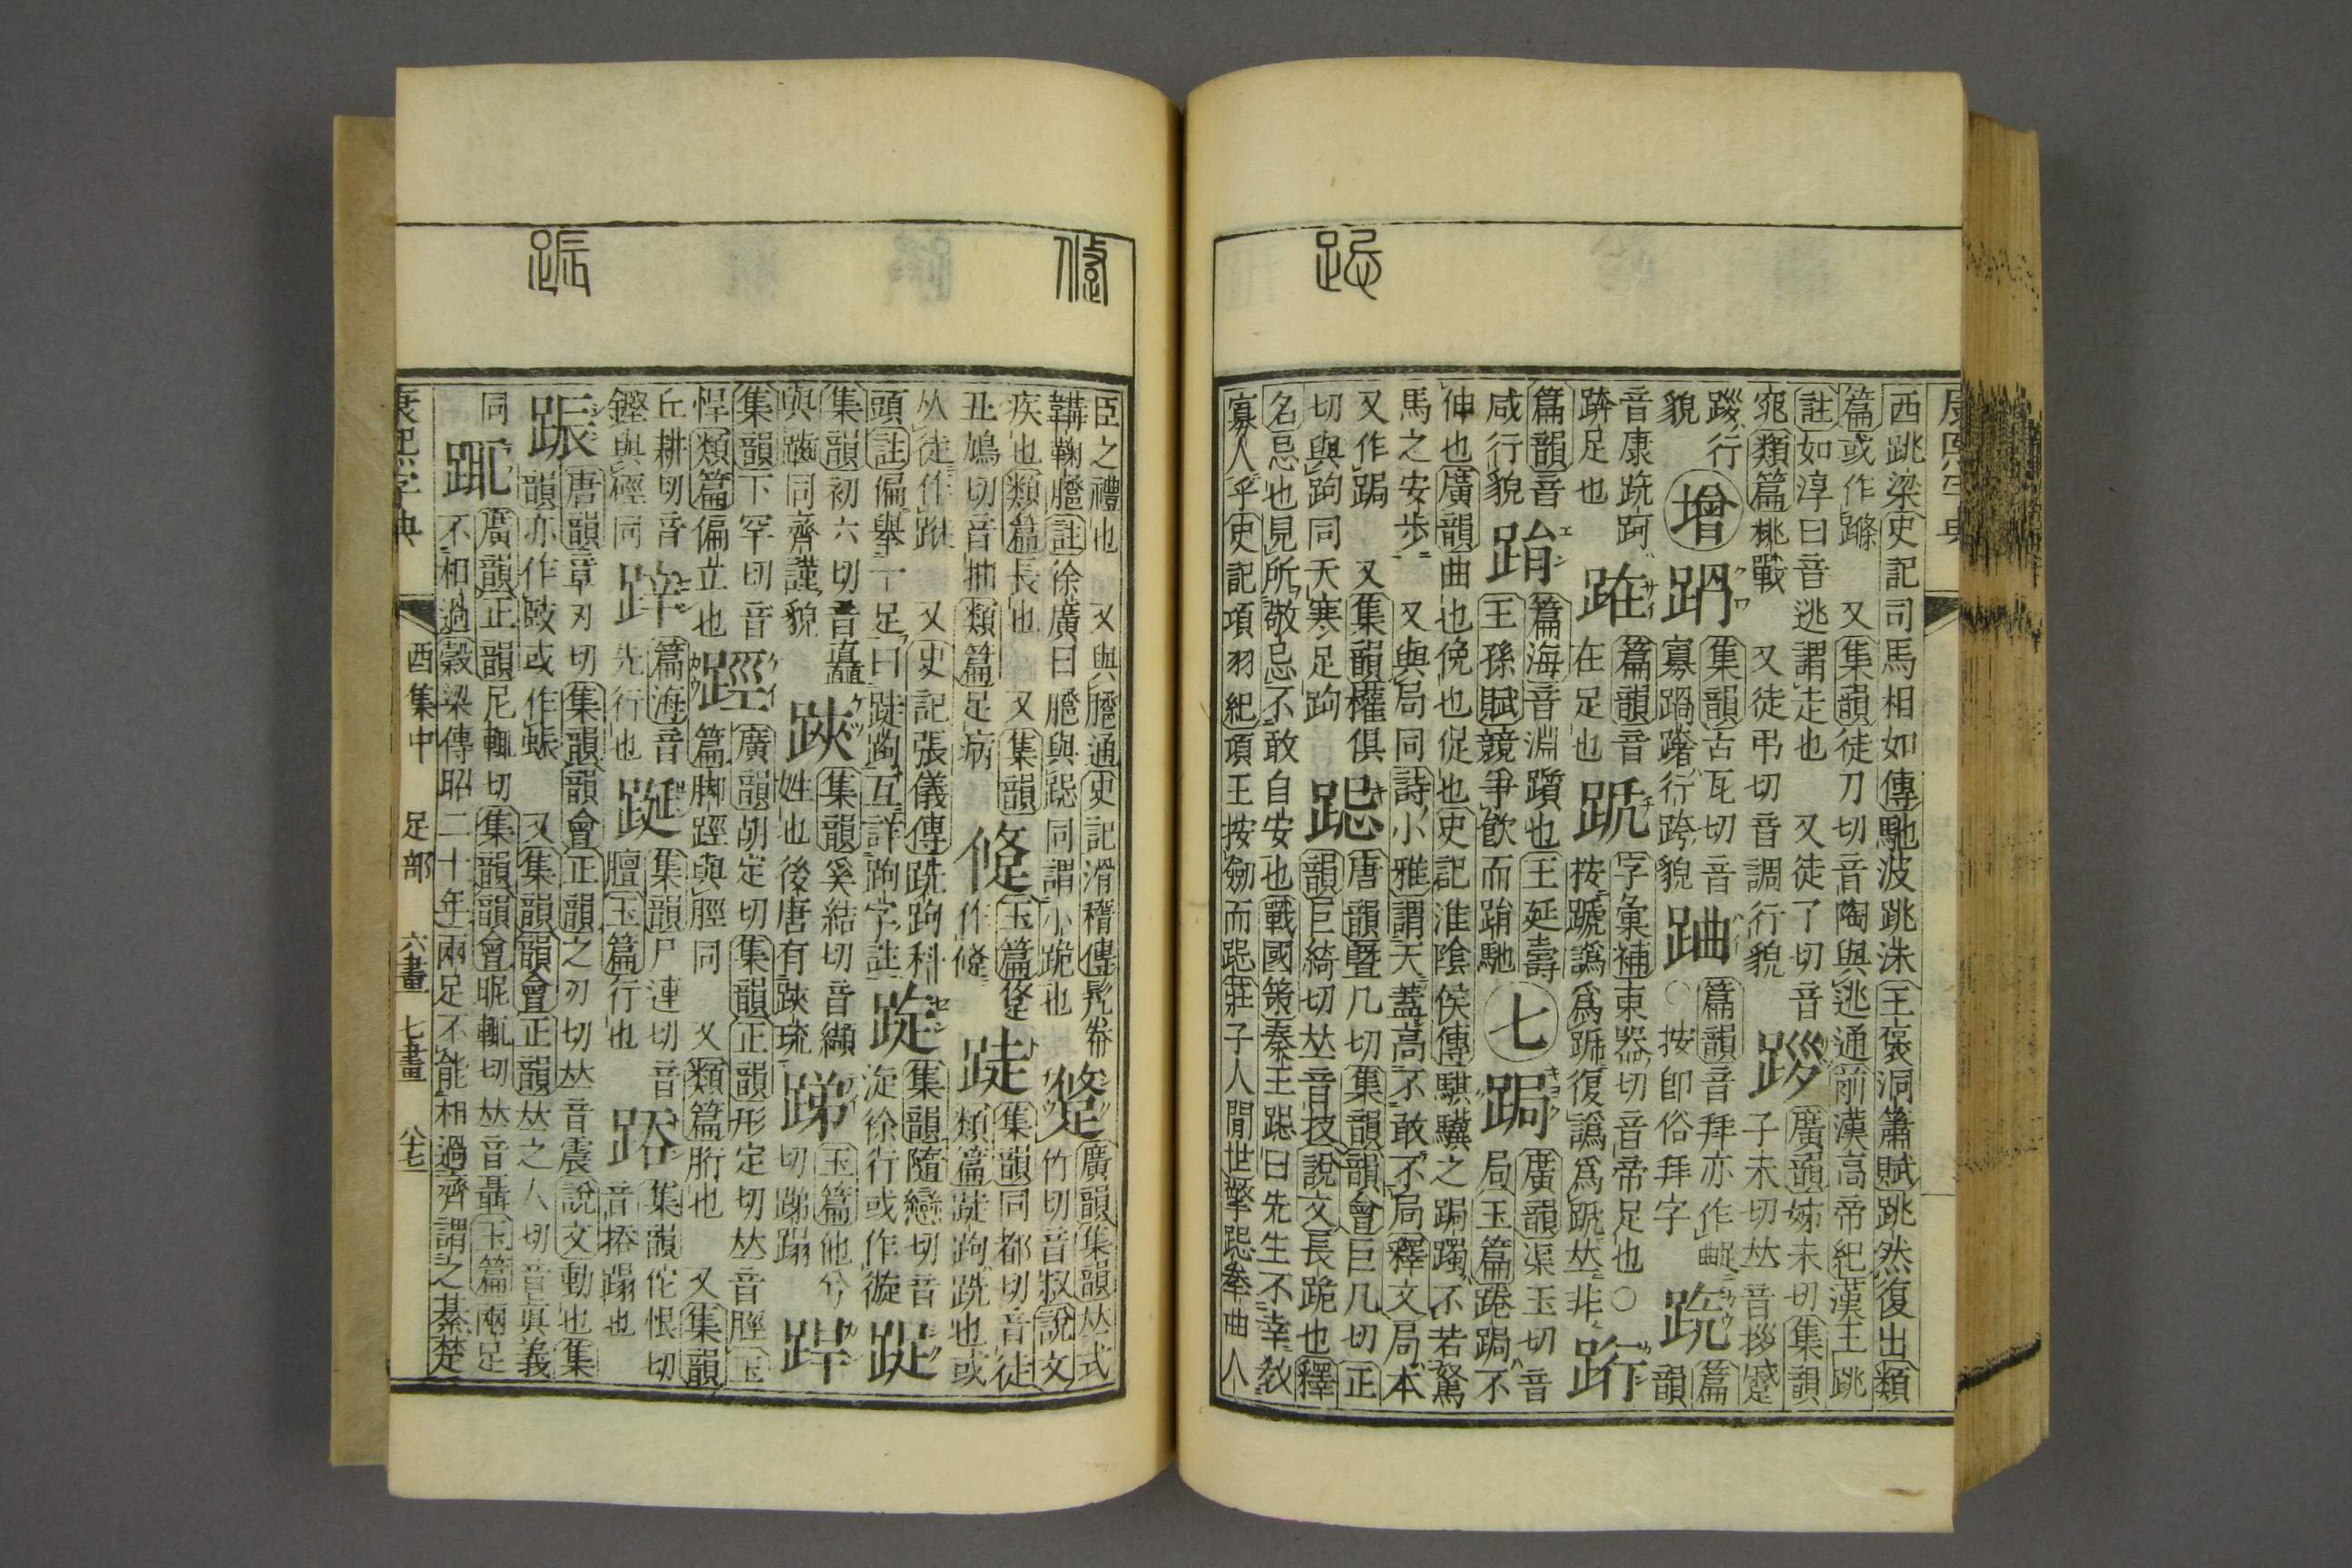 西跳梁史記司馬相如傳馳波跳洙王褒洞簫賦跳然復出類
篇或作蹨 又集韻徒刀切音陶與逃通前漢高帝紀漢王跳
註如淳曰音逃謂走也 又徒了切音
窕類篇挑戰 又徒弔切音調行貌
踐行貌 增
集韻古瓦切音
寡踻躇行跨貌
篇韻音拜亦作
○按卽俗拜字
篇韻
音康跣跒
跡足也
篇韻音
在足也
跐 字彙補東器切音帝足也○
按蹏譌爲蹄復譌爲跐𠀤非
篇韻音
咸行貌
篇海音淵蹟也王延壽
王孫賦競爭飮而踃馳
七
跼 廣韻渠玉切音
局玉篇踡跼不
伸也廣韻曲也俛也促也史記淮陰侯傳騏驥之跼躅不若駑
馬之安步 又與局同詩小雅謂天蓋高不敢不局釋文局本
又作跼 又集韻權俱
切與跔同天寒足跔
跽 唐韻曁几切集韻韻會巨几切正
韻巨綺切𠀤音技說文長跪也釋
名忌也見所敬忌不敢自安也戰國策秦王跽曰先生不幸敎
寡人乎史記項羽紀項王按劒而跽莊子人閒世擎跽拳曲人
臣之禮也 又與䠆通史記滑稽傳髡帣
韝鞠䠆註徐廣曰䠆與跽同謂小跪也
廣韻集韻𠀤式
竹切音叔說文
疾也類篇長也 又集韻
丑鳩切音抽類篇足病
玉篇
集韻同都切音徒
類篇跿跔跣也或
从徒作 又史記張儀傳跣跔科
頭註偏舉一足曰跿跔互詳跔字註
踀 集韻隨戀切音
淀徐行或作漩
踀 集韻初六切音矗
與齪同齊謹貌
集韻奚結切音纈
姓也後唐有䟐琉
踶 玉篇他兮
切踶蹋
集韻下罕切音
悍類篇偏立也
踁 廣韻胡定切集韻正韻形定切𠀤音脛玉
篇脚踁與脛同 又類篇胻也 又集韻
丘耕切音
鏗與硜同
篇海音
先行也
跹 集韻尸連切音
膻玉篇行也
集韻佗恨切
音捹蹋也
踬 唐韻章刃切集韻韻會正韻之刃切𠀤音震說文動也集
韻亦作 或作蜄 又集韻韻會正韻𠀤之人切音眞義
同
踂 廣韻正韻尼輒切集韻韻會昵輒切𠀤音聶玉篇兩足
不相過穀梁傳昭二十年兩足不能相過齊謂之綦楚
康熙字典 酉集中 足部 六畫 七畫